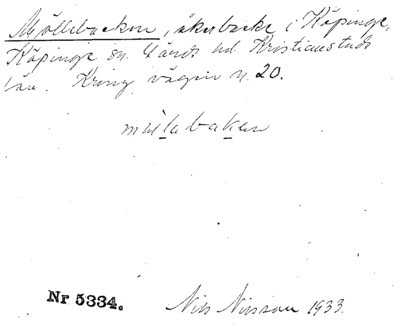 Möllebacken, åkerbacke i Köpinge,
Köpinge sn. Gärds hd Kristianstads
län. Kring vägen n. 20.
möllabaken
Nr 5334. Nils Nilsson 1933.